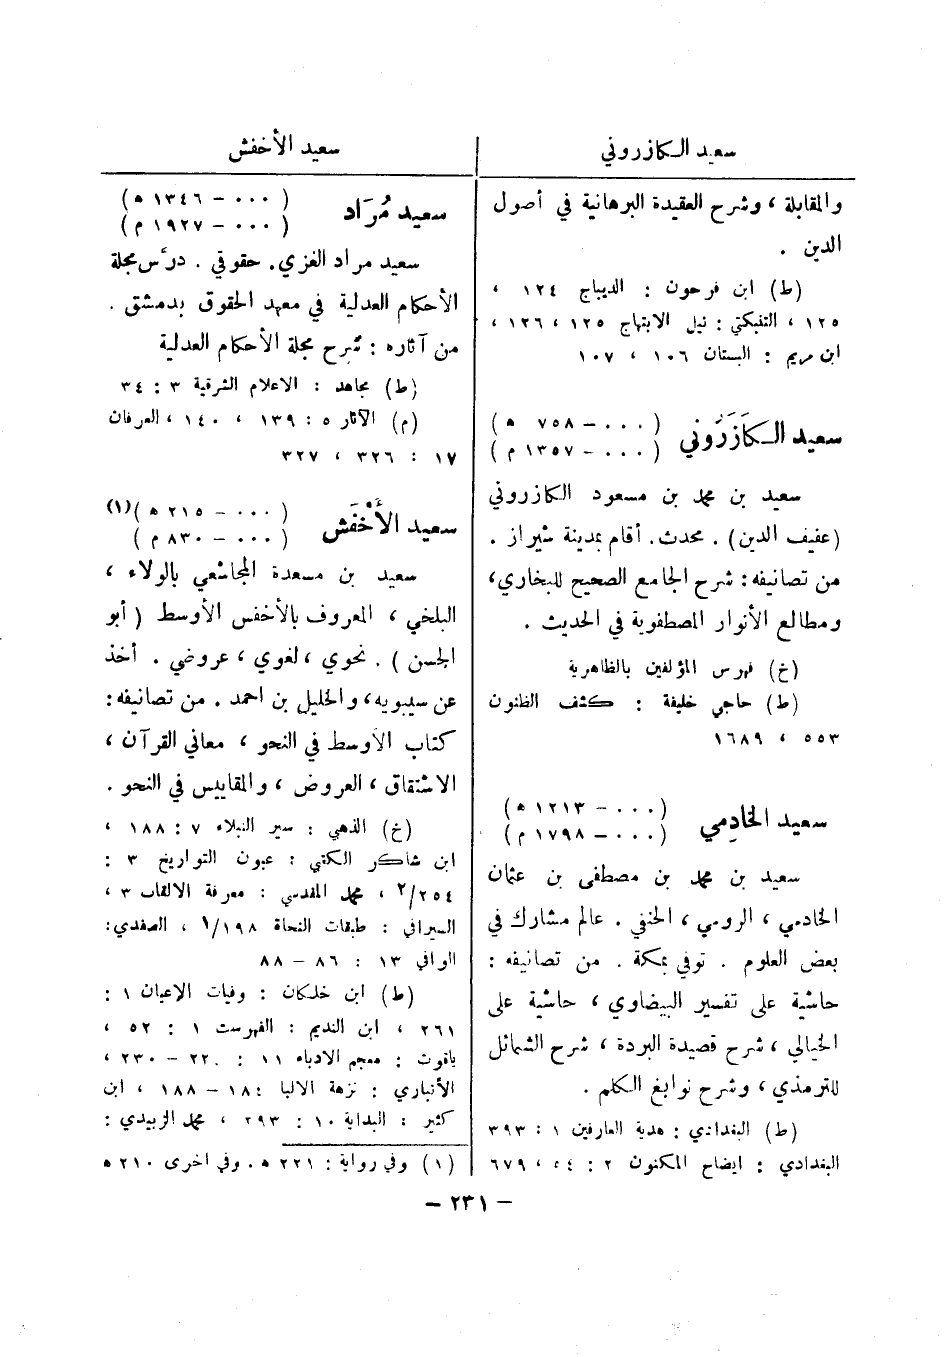 سعيد الكازروني
والمقابلة ، وشرح العقيدة البرهانية في أصول
الدين .
(ط) ابن فرحون : الديباج ١٢٤ ،
١٢٥ ، التنبكتي : نيل الابتهاج ١٢٥ ، ١٢٦ ،
ابن مريم : البستان ١٠٦ ، ١٠٧
سعيد الكَازَرُوني (٠٠٠ - ٧٥٨ هـ)
(٠٠٠ - ١٣٥٧ م)
سعيد بن محمد بن مسعود الكازروني
(عفيف الدين) . محدث . أقام بمدينة شيراز .
من تصانيفه : شرح الجامع الصحيح للبخاري ،
ومطالع الأنوار المصطفوية في الحديث .
(خ) فهرس المؤلفين بالظاهرية
(ط) حاجي خليفة : كشف الظنون
٥٥٣ ، ١٦٨٩
سعيد الخادِمي (٠٠٠ - ١٢١٣ هـ)
(٠٠٠ - ١٧٩٨ م)
سعيد بن محمد بن مصطفى بن عثمان
الخادمي ، الرومي ، الحنفي . عالم مشارك في
بعض العلوم . توفي بمكة . من تصانيفه :
حاشية على تفسير البيضاوي ، حاشية على
الخيالي ، شرح قصيدة البردة ، شرح الشمائل
للترمذي ، وشرح نوابغ الكلم .
(ط) البغدادي : هدية العارفين ١ : ٣٩٣
البغدادي : ايضاح المكنون ٢ : ٥٤ ، ٦٧٩
سعيد الأخفش
سعيد مُرَاد (٠٠٠ - ١٣٤٦ هـ)
(٠٠٠ - ١٩٢٧ م)
سعيد مراد الغزي . حقوقي . درَّس مجلة
الأحكام العدلية في معهد الحقوق بدمشق .
من آثاره : شرح مجلة الأحكام العدلية
(ط) مجاهد : الاعلام الشرقية ٣ : ٣٤
(م) الآثار ٥ : ١٣٩ ، ١٤٠ ، العرفان
١٧ : ٣٢٦ ، ٣٢٧
سعيد الأَخْفَش (٠٠٠ - ٢١٥ هـ)(١)
(٠٠٠ - ٨٣٠ م)
سعيد بن مسعدة المجاشعي بالولاء ،
البلخي ، المعروف بالأخفس الأوسط (أبو
الحسن) . نحوي ، لغوي ، عروضي . أخذ
عن سيبويه ، والخليل بن احمد . من تصانيفه :
كتاب الأوسط في النحو ، معاني القرآن ،
الاشتقاق ، العروض ، والمقاييس في النحو .
(خ) الذهبي : سير النبلاء ٧ : ١٨٨ ،
ابن شاكر الكتبي : عيون التواريخ ٣ :
٢/٢٥٤ ، محمد المقدسي : معرفة الالقاب ٣ ،
السيرافي : طبقات النحاة ١/١٩٨ ، الصفدي :
الوافي ١٣ : ٨٦ - ٨٨
(ط) ابن خلكان : وفيات الاعيان ١ :
٢٦١ ، ابن النديم : الفهرست ١ : ٥٢ ،
ياقوت : معجم الادباء ١١ : ٢٢٠ - ٢٣٠ ،
الأنباري : نزهة الالبا : ١٨ - ١٨٨ ، ابن
كثير : البداية ١٠ : ٢٩٣ ، محمد الزبيدي :
(١) وفي رواية : ٢٢١ هـ . وفي اخرى ٢١٠ هـ
- ٢٣١ -